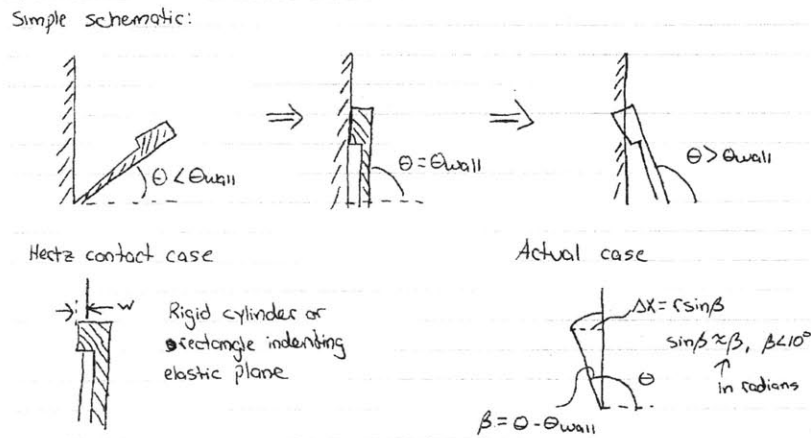 Simple schematic:
θ < θwall
⇒
θ = θwall
⇒
θ > θwall
Hertz contact case
w
Rigid cylinder or
rectangle indenting
elastic plane
Actual case
Δx = r sinβ
sinβ ≈ β, β < 10°
↑
in radians
θ
β = θ - θwall